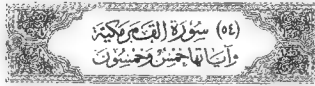 (٥٤) سُورَة القَمَرِ مَكِيَّة
وَآيَاتُهَا خَمْسٌ وَخَمْسُونَ